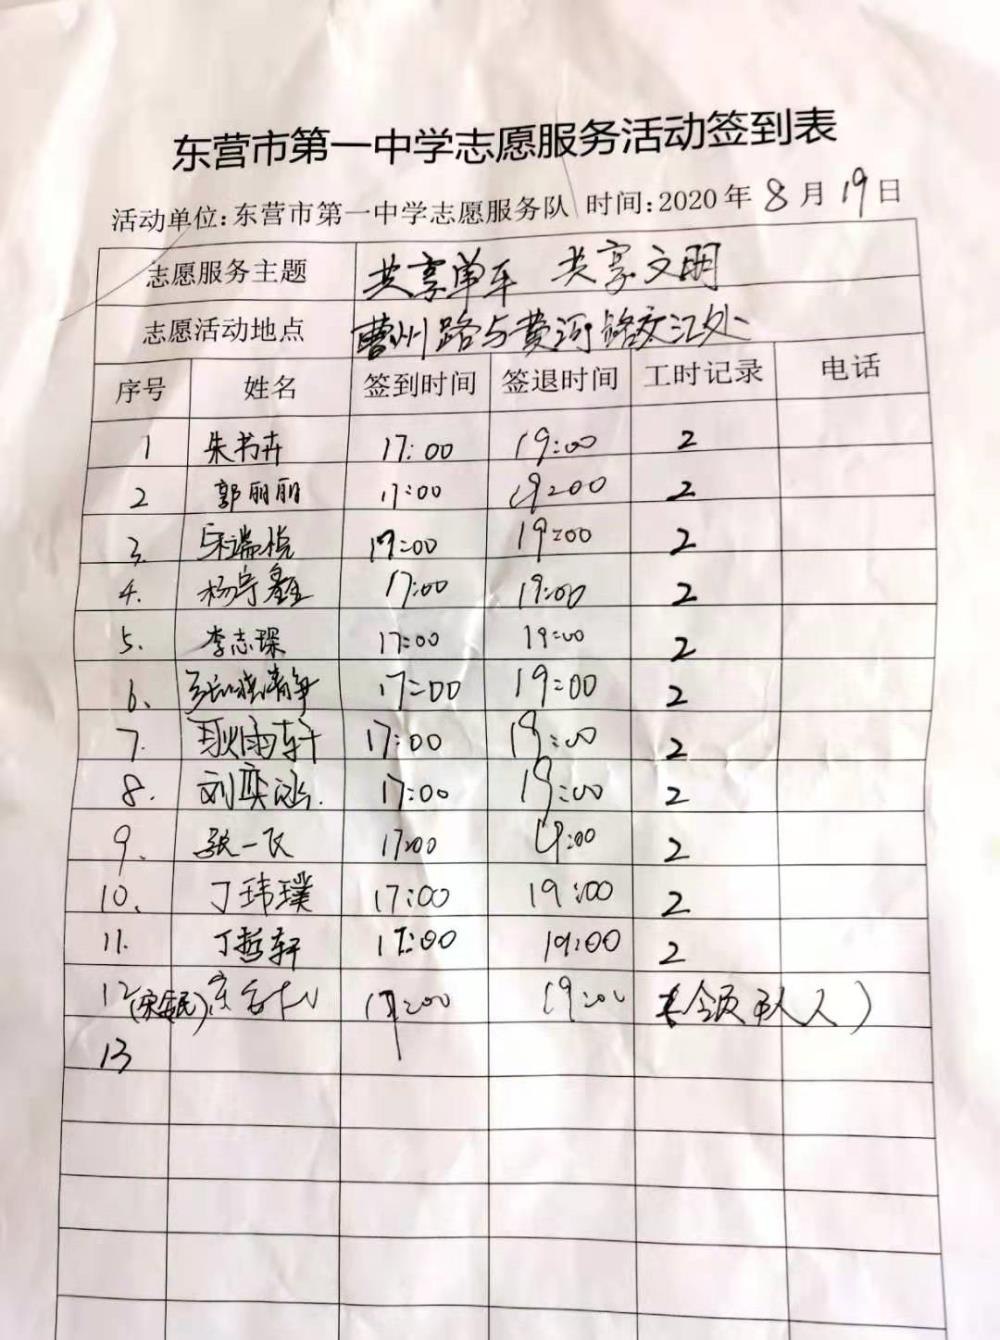 东营市第一中学志愿服务活动签到表
活动单位:东营市第一中学志愿服务队 时间:2020年8月19日
志愿服务主题 共享单车 共享文明
志愿活动地点 曹州路与黄河路交汇处
序号 姓名 签到时间 签退时间 工时记录 电话
1 朱书卉 17:00 19:00 2
2 郭丽丽 17:00 19:00 2
3. 宋端悦 17:00 19:00 2
4. 杨宇鑫 17:00 19:00 2
5. 李志琛 17:00 19:00 2
6. 17:00 19:00 2
7. 耿雨轩 17:00 19:00 2
8. 刘奕泓. 17:00 19:00 2
9. 张一飞 17:00 19:00 2
10. 丁玮璞 17:00 19:00 2
11. 丁哲轩 17:00 19:00 2
12 17:00 19:00 (领队人)
13